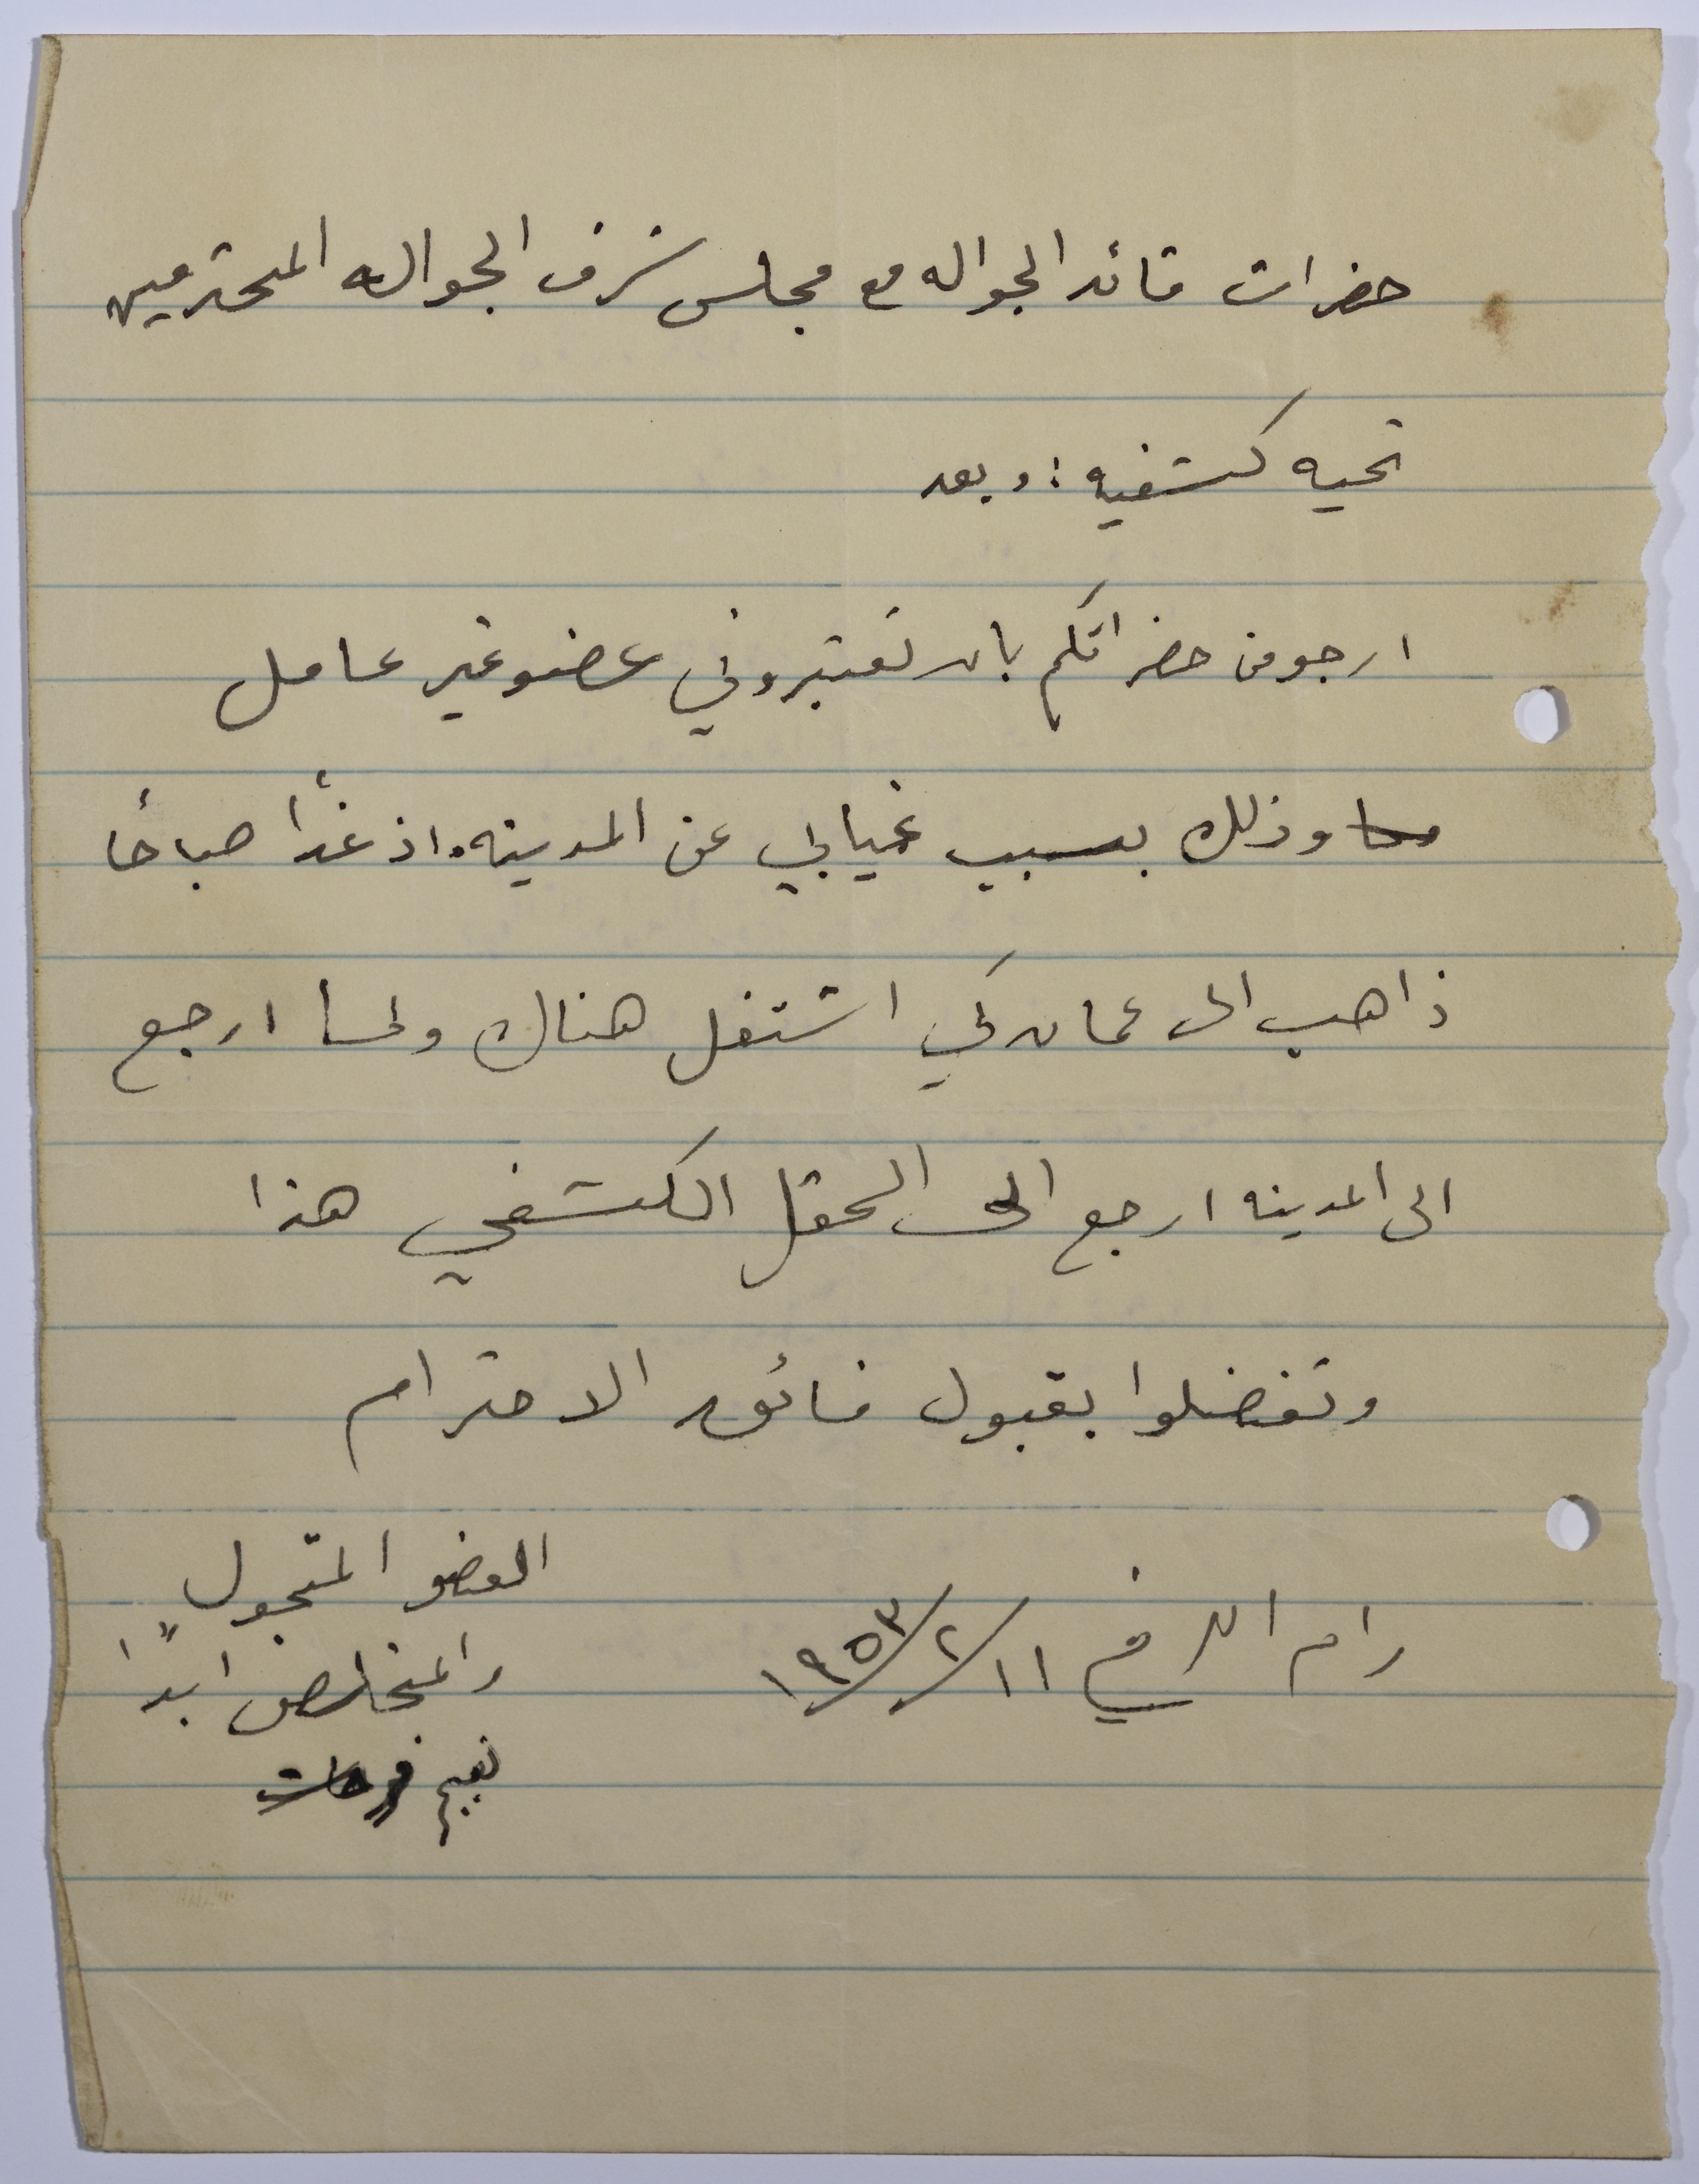 حضرات قائد الجواله مع مجلس شرف الجواله المحترمين
تحيه كشفيه : وبعد
ارجو من حضراتكم بان تعتبروني عضو غير عامل
وذلك بسبب غيابي عن المدينه. اذ غداً صباحاً
ذاهب الى عمان كي اشتغل هناك ولما ارجع
الى المدينه ارجع الى الحقل الكشفي هذا
وتفضلوا بقبول فائق الاحترام
العضو المتجول
رام الله في ١١/٢/١٩٥٣
والمخلص ابداً
نعيم فرحات